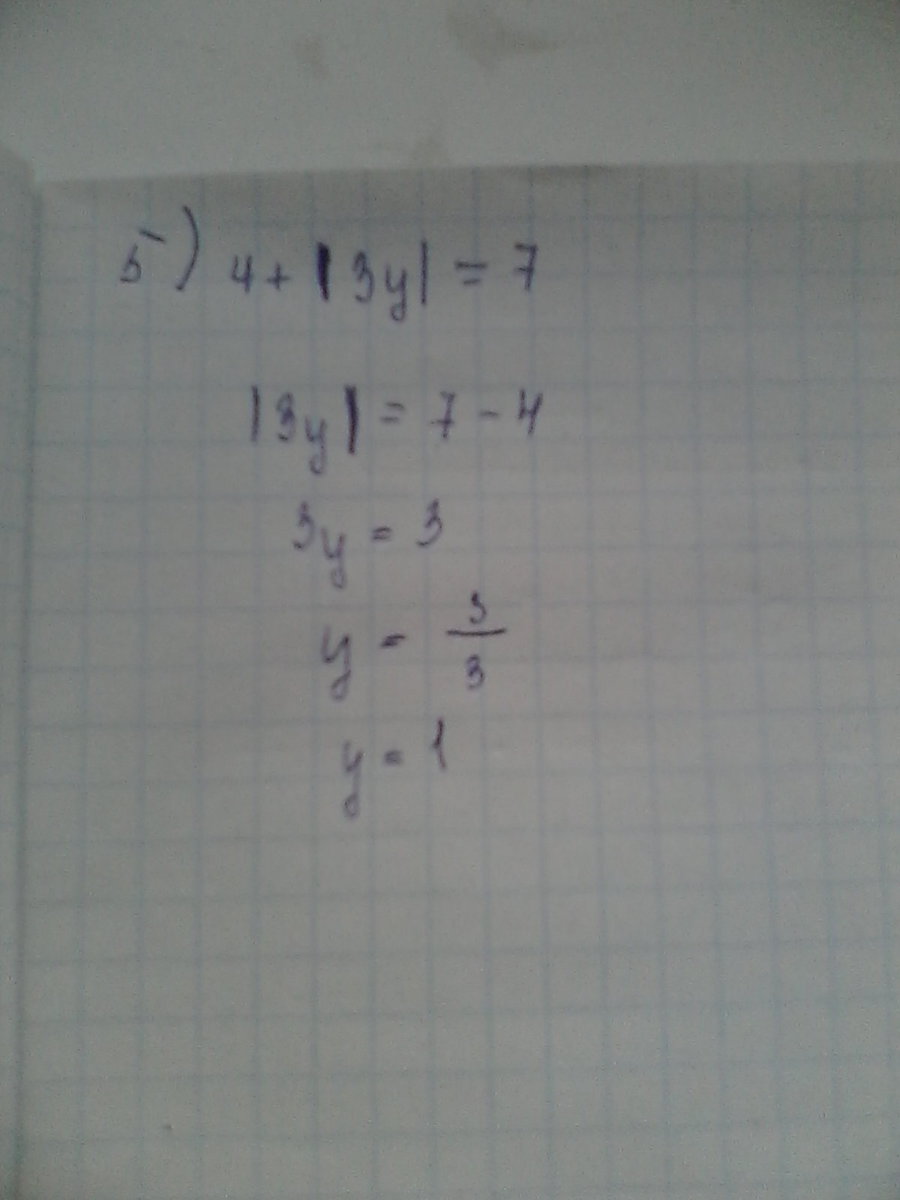 5) 4 + |3y| = 7
|3y| = 7 - 4
3y = 3
y = 3/3
y = 1